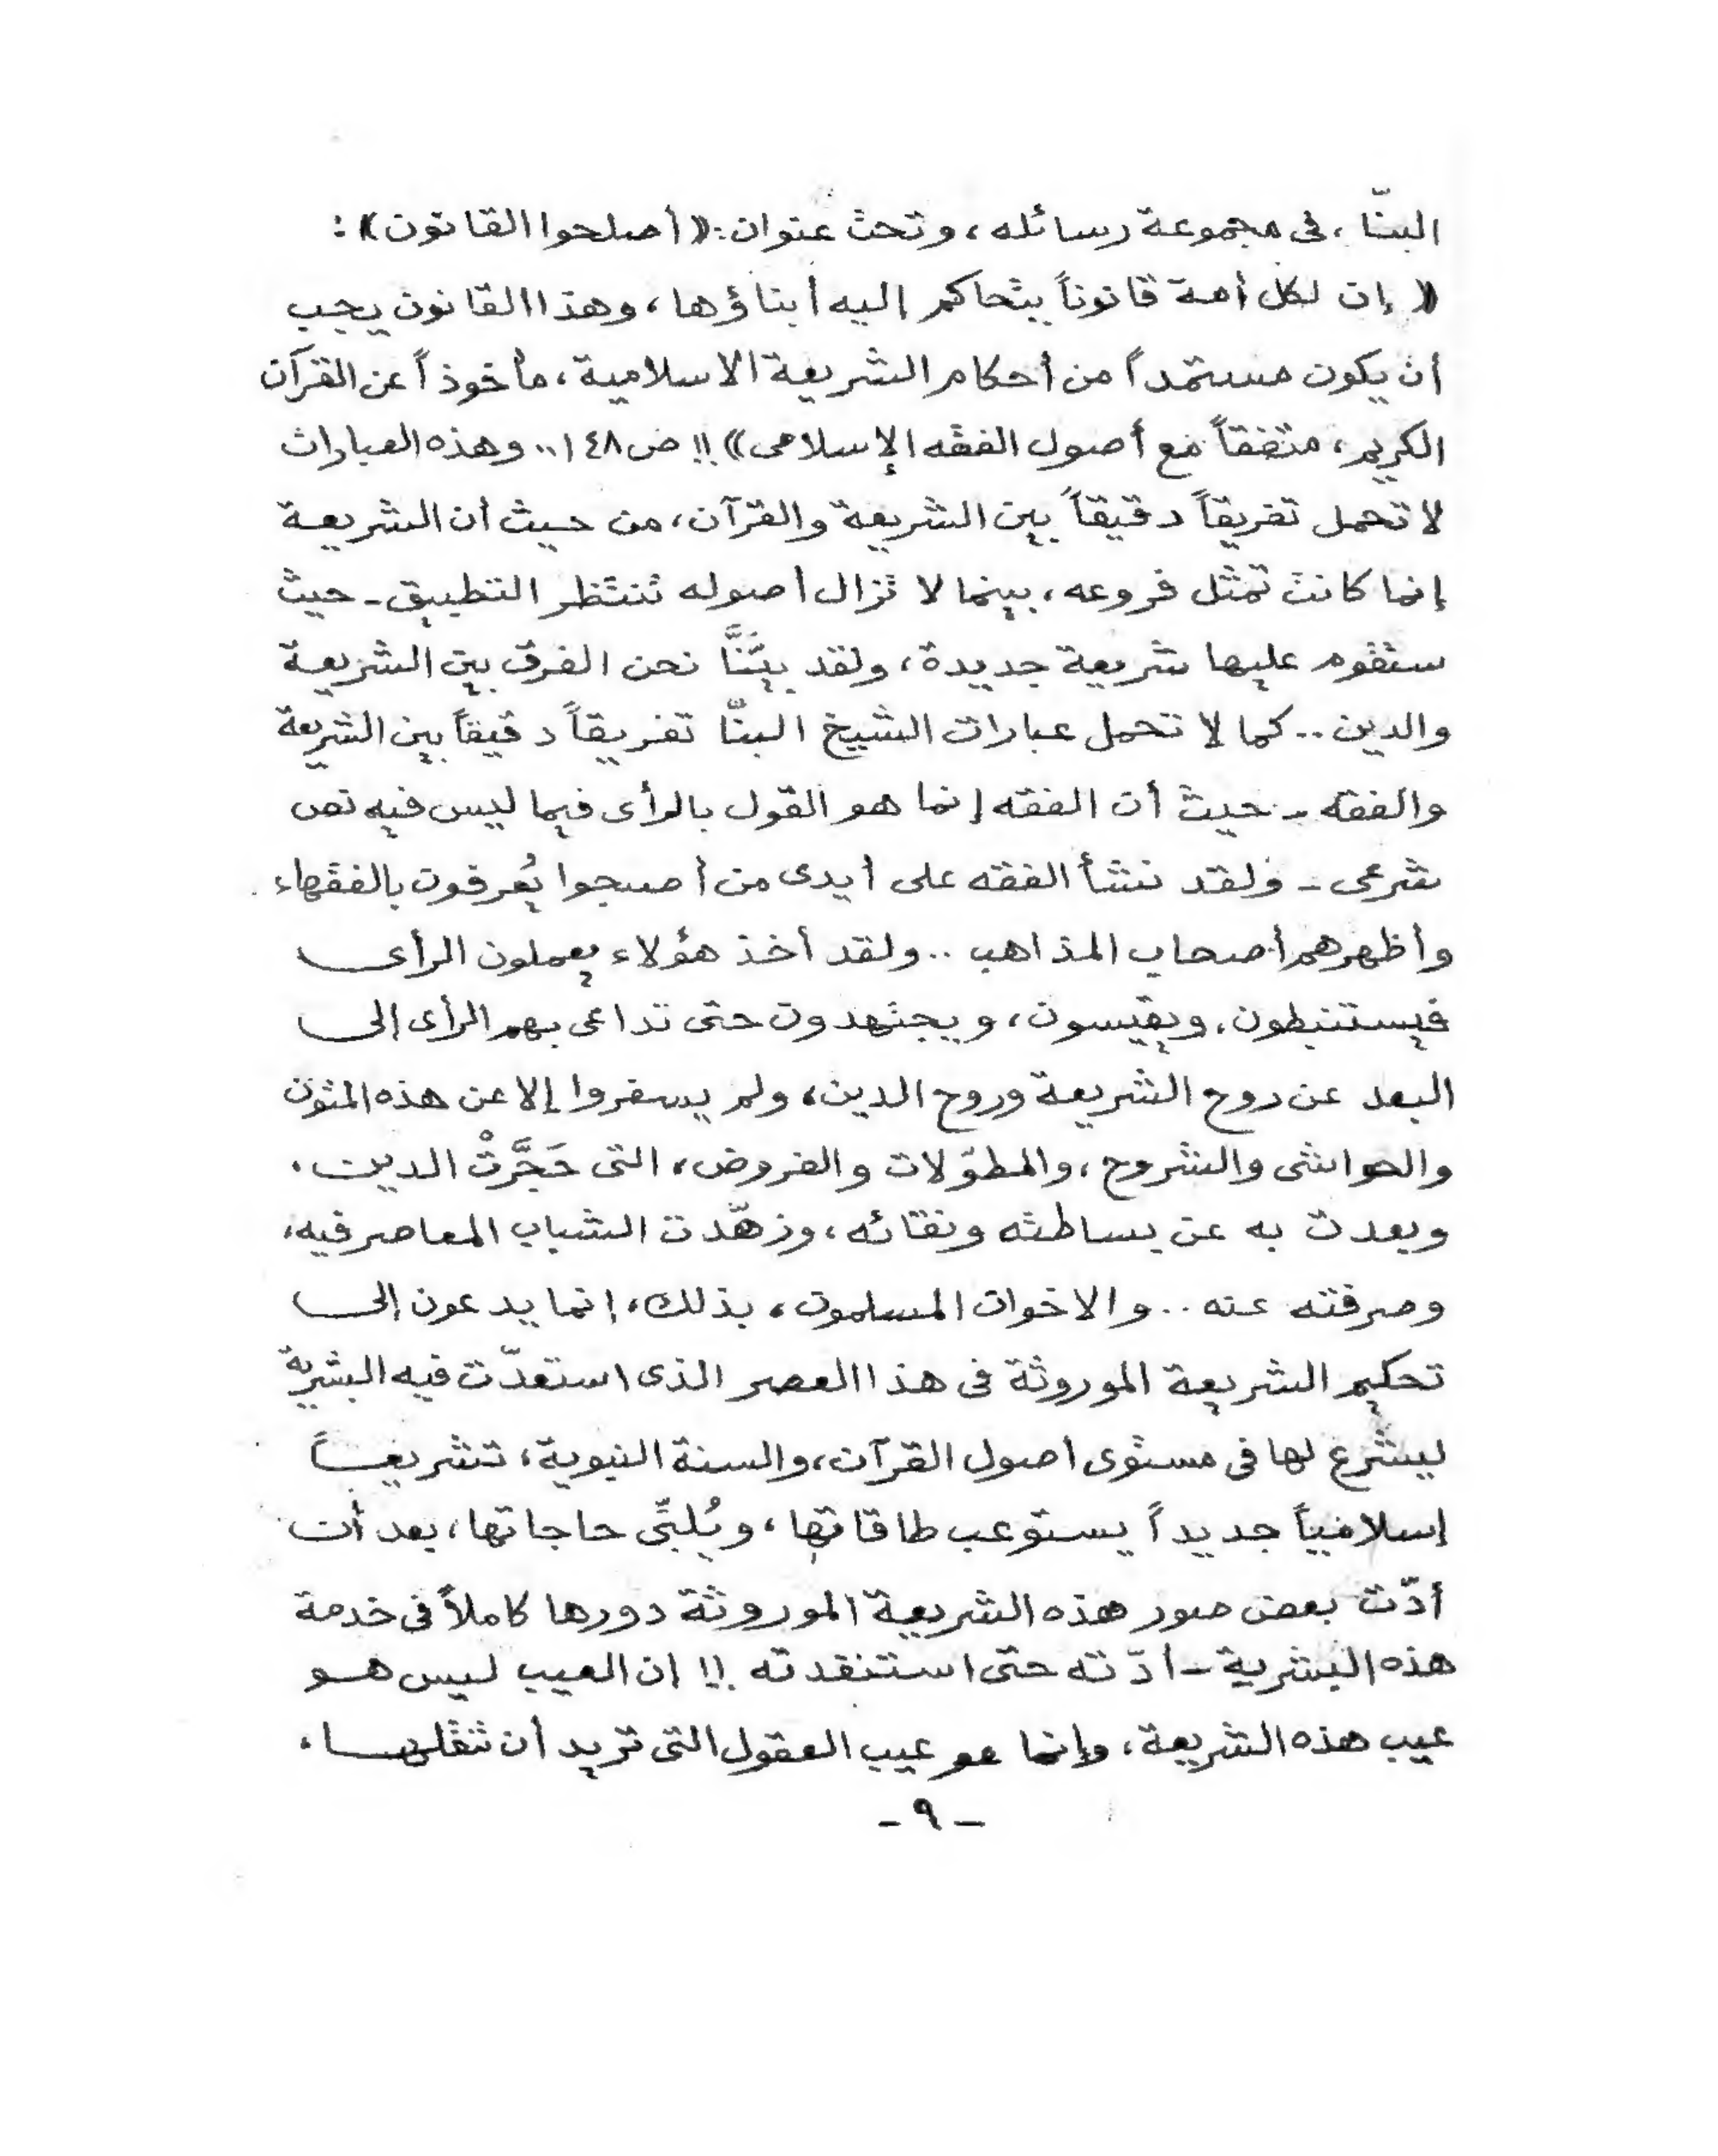 البنّا، فى مجموعة رسائله، وتحت عنوان: ((أصلحوا القانون)):
(( إن لكل أمة قانوناً يتحاكم إليه أبناؤها، وهذا القانون يجب
أن يكون مستمداً من أحكام الشريعة الاسلامية، مأخوذاً عن القرآن
الكريم، متفقاً مع أصول الفقه الإسلامى)) !! ص ١٤٨.. وهذه العبارات
لا تحمل تفريقاً دقيقاً بين الشريعة والقرآن، من حيث أن الشريعة
إنما كانت تمثل فروعه، بينما لا تزال أصوله تنتظر التطبيق - حيث
ستقوم عليها شريعة جديدة، ولقد بيَّنَّا نحن الفرق بين الشريعة
والدين.. كما لا تحمل عبارات الشيخ البنّا تفريقاً دقيقاً بين الشريعة
والفقه - حيث أن الفقه إنما هو القول بالرأى فيما ليس فيه نص
شرعى - ولقد نشأ الفقه على أيدى من أصبحوا يُعرفون بالفقهاء.
وأظهرهم أصحاب المذاهب .. ولقد أخذ هؤلاء يعملون الرأى
فيستنبطون، ويقيسون، ويجتهدون حتى تداعى بهم الرأى إلى
البعد عن روح الشريعة وروح الدين، ولم يسفروا إلا عن هذه المتون
والحواشى والشروح، والمطوّلات والفروض، التى حَجَّرتْ الدين،
وبعدت به عن بساطته ونقائه، وزهّدت الشباب المعاصر فيه،
وصرفته عنه .. والاخوان المسلمون، بذلك، إنما يدعون إلى
تحكيم الشريعة الموروثة فى هذا العصر الذى استعدّت فيه البشرية
ليشرع لها فى مستوى أصول القرآن، والسنة النبوية، تشريعاً
إسلامياً جديداً يستوعب طاقاتها، ويُلبِّى حاجاتها، بعد أن
أدّت بعض صور هذه الشريعة الموروثة دورها كاملاً فى خدمة
هذه البشرية - أدّته حتى استنفدته !! إن العيب ليس هو
عيب هذه الشريعة، وإنما هو عيب العقول التى تريد أن تنقلها،
- ٩ -